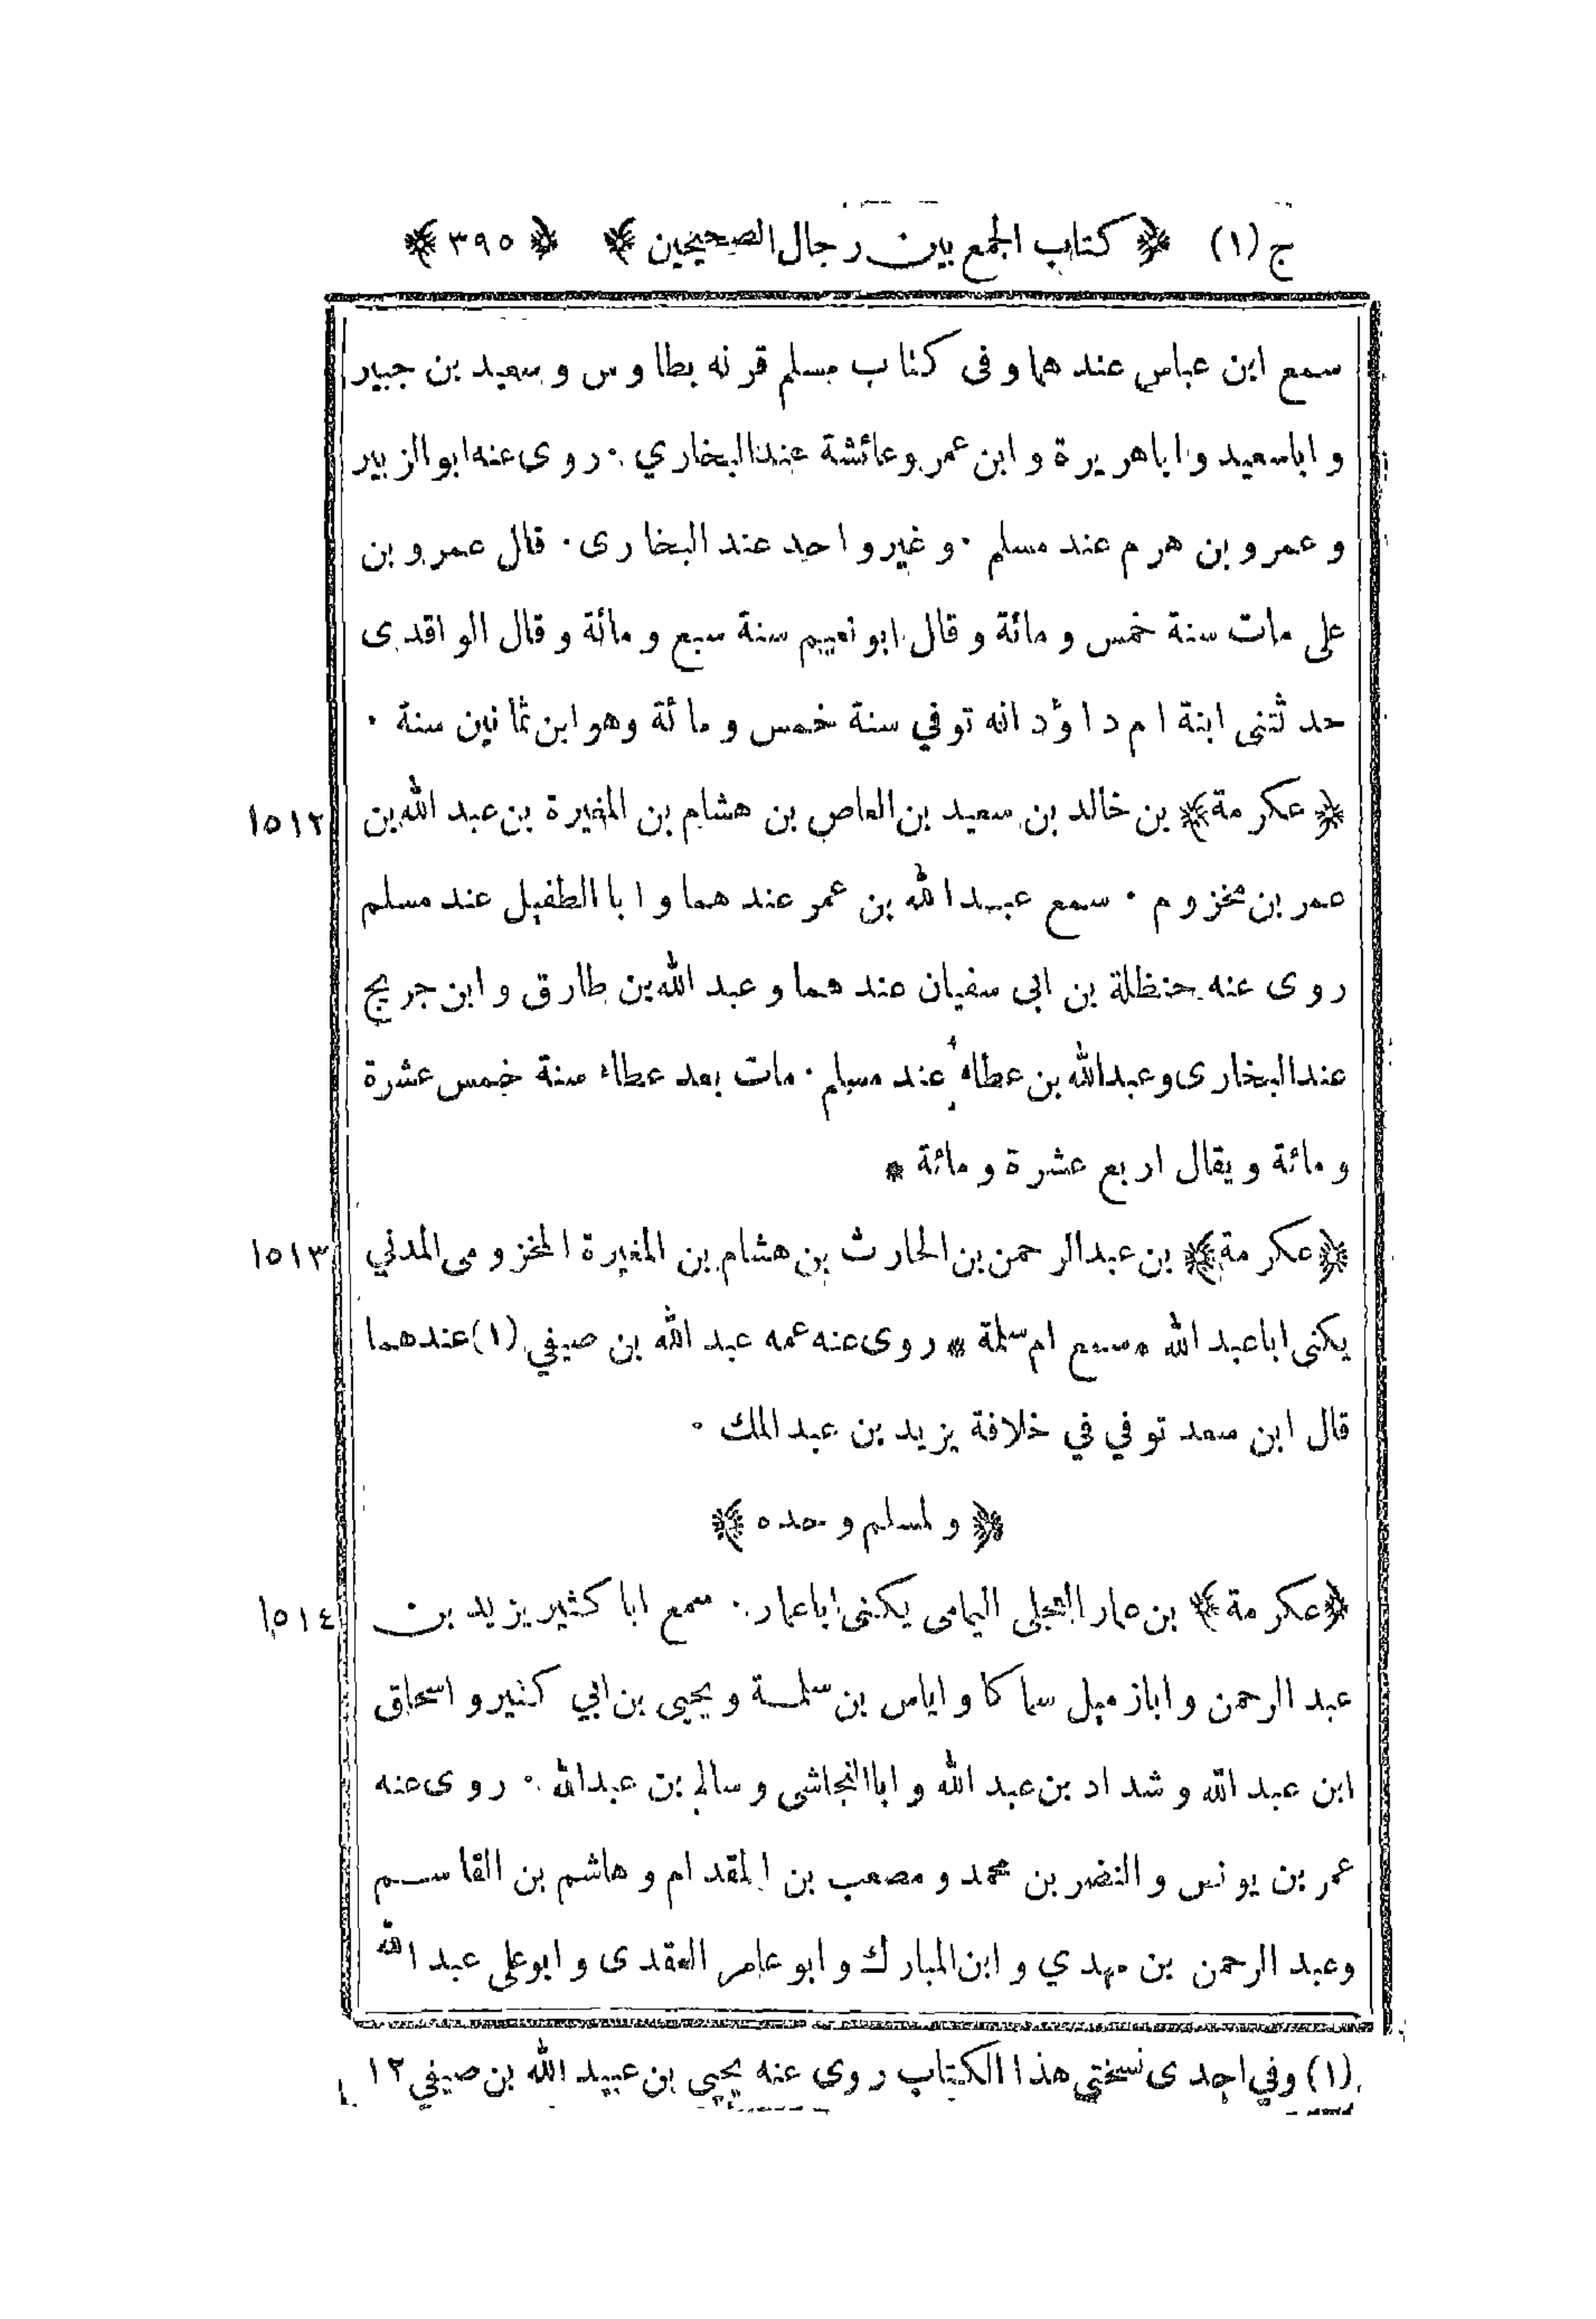 ج (١) ﴿ كتاب الجمع بين رجال الصحيحين ﴾ ﴿ ٣٩٥ ﴾
سمع ابن عباس عندهما وفى كتاب مسلم قرنه بطاوس وسعيد بن جبير
و اباسعيد و اباهريرة و ابن عمر وعائشة عندالبخاري . روى عنه ابو الزبير
و عمرو بن هرم عند مسلم . و غير واحد عند البخارى . قال عمرو بن
على مات سنة خمس و مائة و قال ابو نعيم سنة سبع و مائة و قال الواقدى
حدثتنى ابنة ام داؤد انه توفي سنة خمس و مائة وهو ابن ثمانين سنة .
﴿ عكرمة ﴾ بن خالد بن سعيد بن العاص بن هشام بن المغيرة بن عبد الله بن ١٥١٢
عمر بن مخزوم . سمع عبدالله بن عمر عندهما و ابا الطفيل عند مسلم
روى عنه حنظلة بن ابى سفيان عندهما و عبد الله بن طارق و ابن جريج
عندالبخارى وعبدالله بن عطاء عند مسلم . مات بعد عطاء سنة خمس عشرة
و مائة و يقال اربع عشرة و مائة *
﴿ عكرمة ﴾ بن عبدالرحمن بن الحارث بن هشام بن المغيرة المخزومى المدني ١٥١٣
يكنى اباعبد الله * سمع ام سلمة * روى عنه عمه عبد الله بن صيفي (١) عندهما
قال ابن سعد توفي في خلافة يزيد بن عبد الملك .
﴿ ولمسلم وحده ﴾
﴿ عكرمة ﴾ بن عمار العجلى اليمامى يكنى اباعمار . سمع ابا كثير يزيد بن ١٥١٤
عبد الرحمن و ابازميل سماكا و اياس بن سلمة و يحيى بن ابي كثير و اسحاق
ابن عبد الله و شداد بن عبد الله و ابا النجاشى و سالم بن عبدالله . روى عنه
عمر بن يونس و النضر بن محمد و مصعب بن المقدام و هاشم بن القاسم
وعبد الرحمن بن مهدي و ابن المبارك و ابو عامر العقدى و ابو على عبد الله
(١) وفي احدى نسختي هذا الكتاب روى عنه يحيى بن عبيد الله بن صيفي ١٢